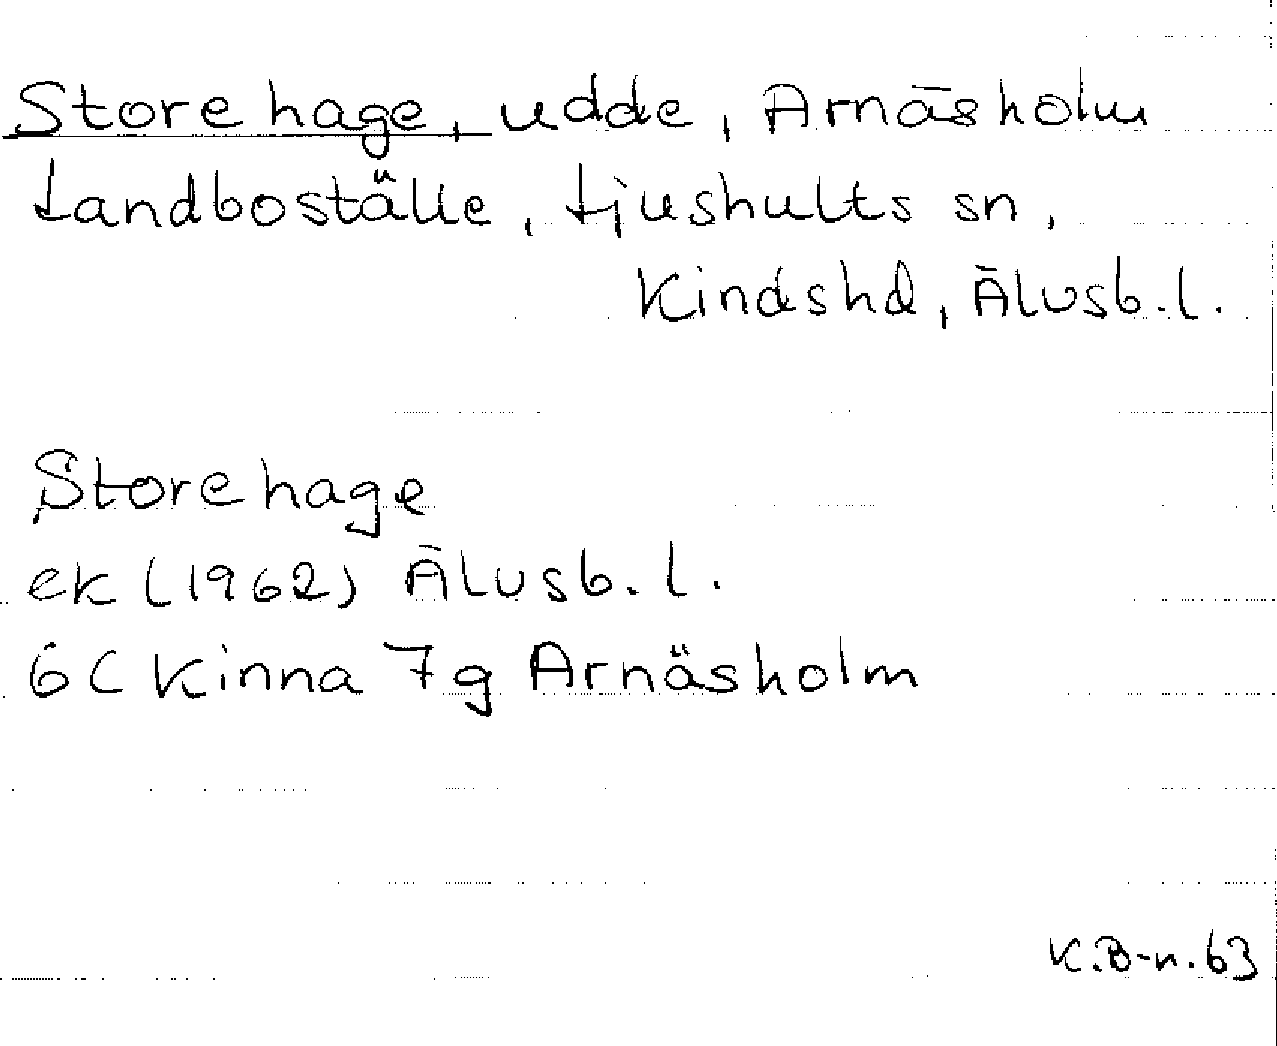 Storehage, udde, Arnäsholm
Landboställe, Ljushults sn,
Kindshd, Älvsb. l.
Storehage
ek (1962) Älvsb. l.
6C Kinna 7g Arnäsholm
K.B-n. 63